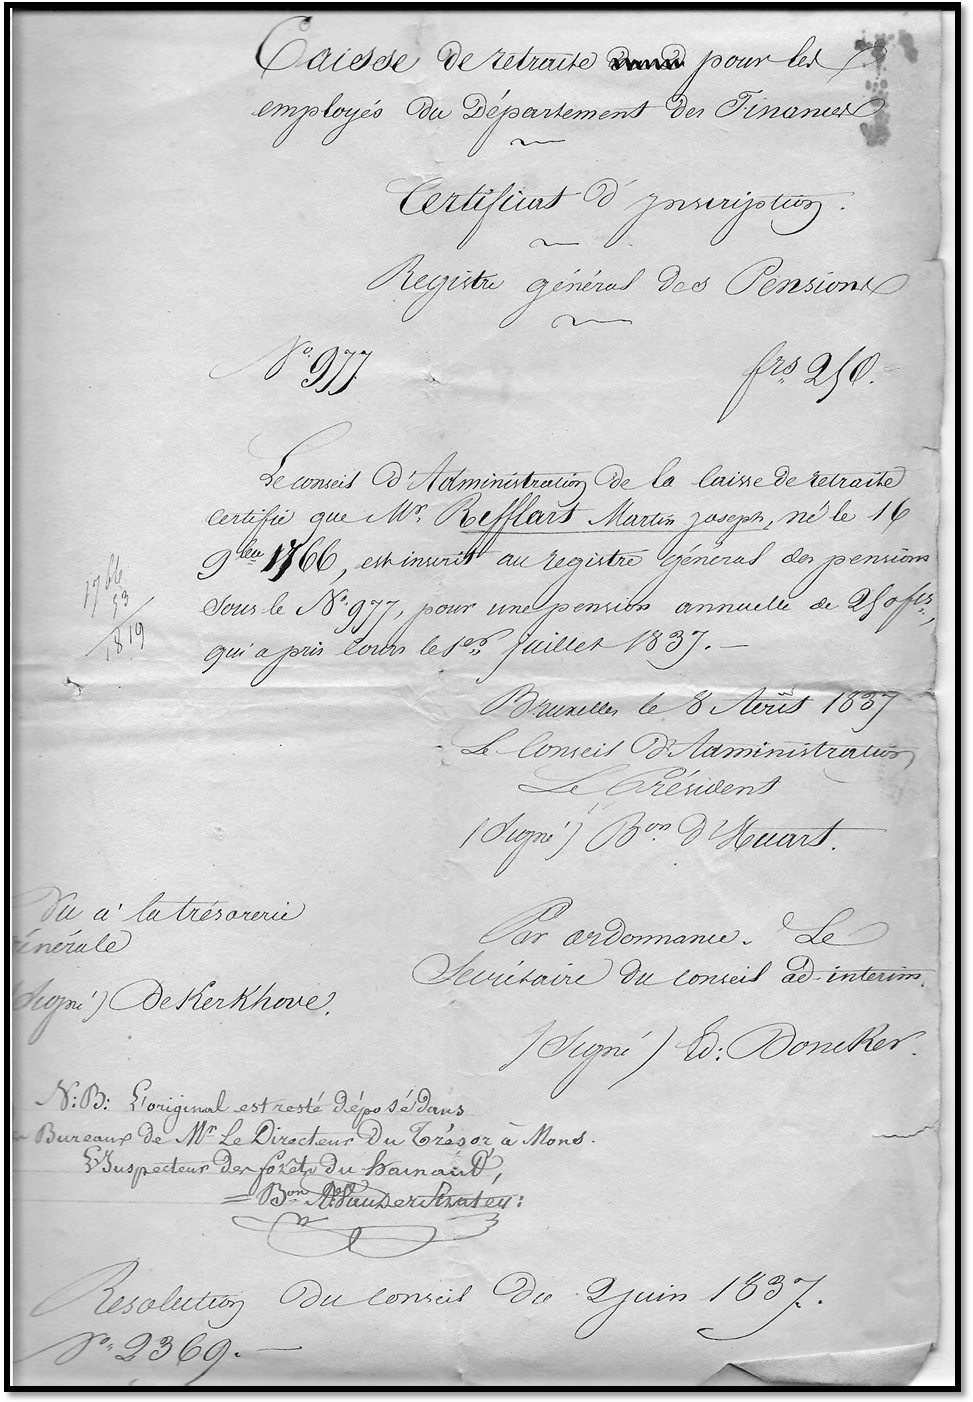 Caisse de retraite pour les
employés du Département des Finances
Certificat d'ynscription.
Registre général des Pensions
N° 977 frs 250.
Le conseil d'Administration de la caisse de retraite
certifie que Mr. Refflart Martin joseph, né le 16
9bre 1766, est inscrit au registre général des pensions
sous le N° 977, pour une pension annuelle de 250 frs,
qui a pris cours le 1er juillet 1837. —
1766
53
1819
Bruxelles le 8 Août 1837
Le Conseil d'Administration
Le Président
(Signé) Bon d'Huart.
Vu a' la trésorerie
générale
(Signé) DeKerkhove.
Par ordonnance. Le
Secrétaire du conseil ad-interim.
(Signé) Ed: Doncker.
N:B: L'original est resté déposé dans
Bureaux de Mr Le Directeur Du Trésor à Mons.
L'Inspecteur des forêts du hainaut,
Bon
Resolution du conseil du 2 juin 1837.
N° 2369. —